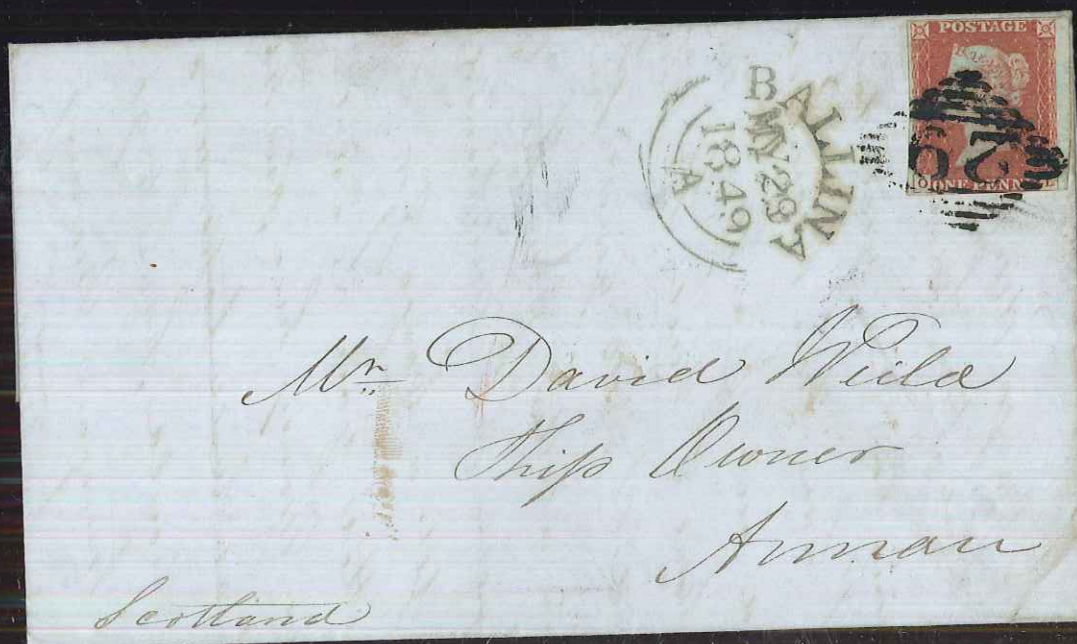 POSTAGE
29
ONE PENN
BALLINA
MY 29
1849
A
Mr David Weild
Ship Owner
Annan
Scotland